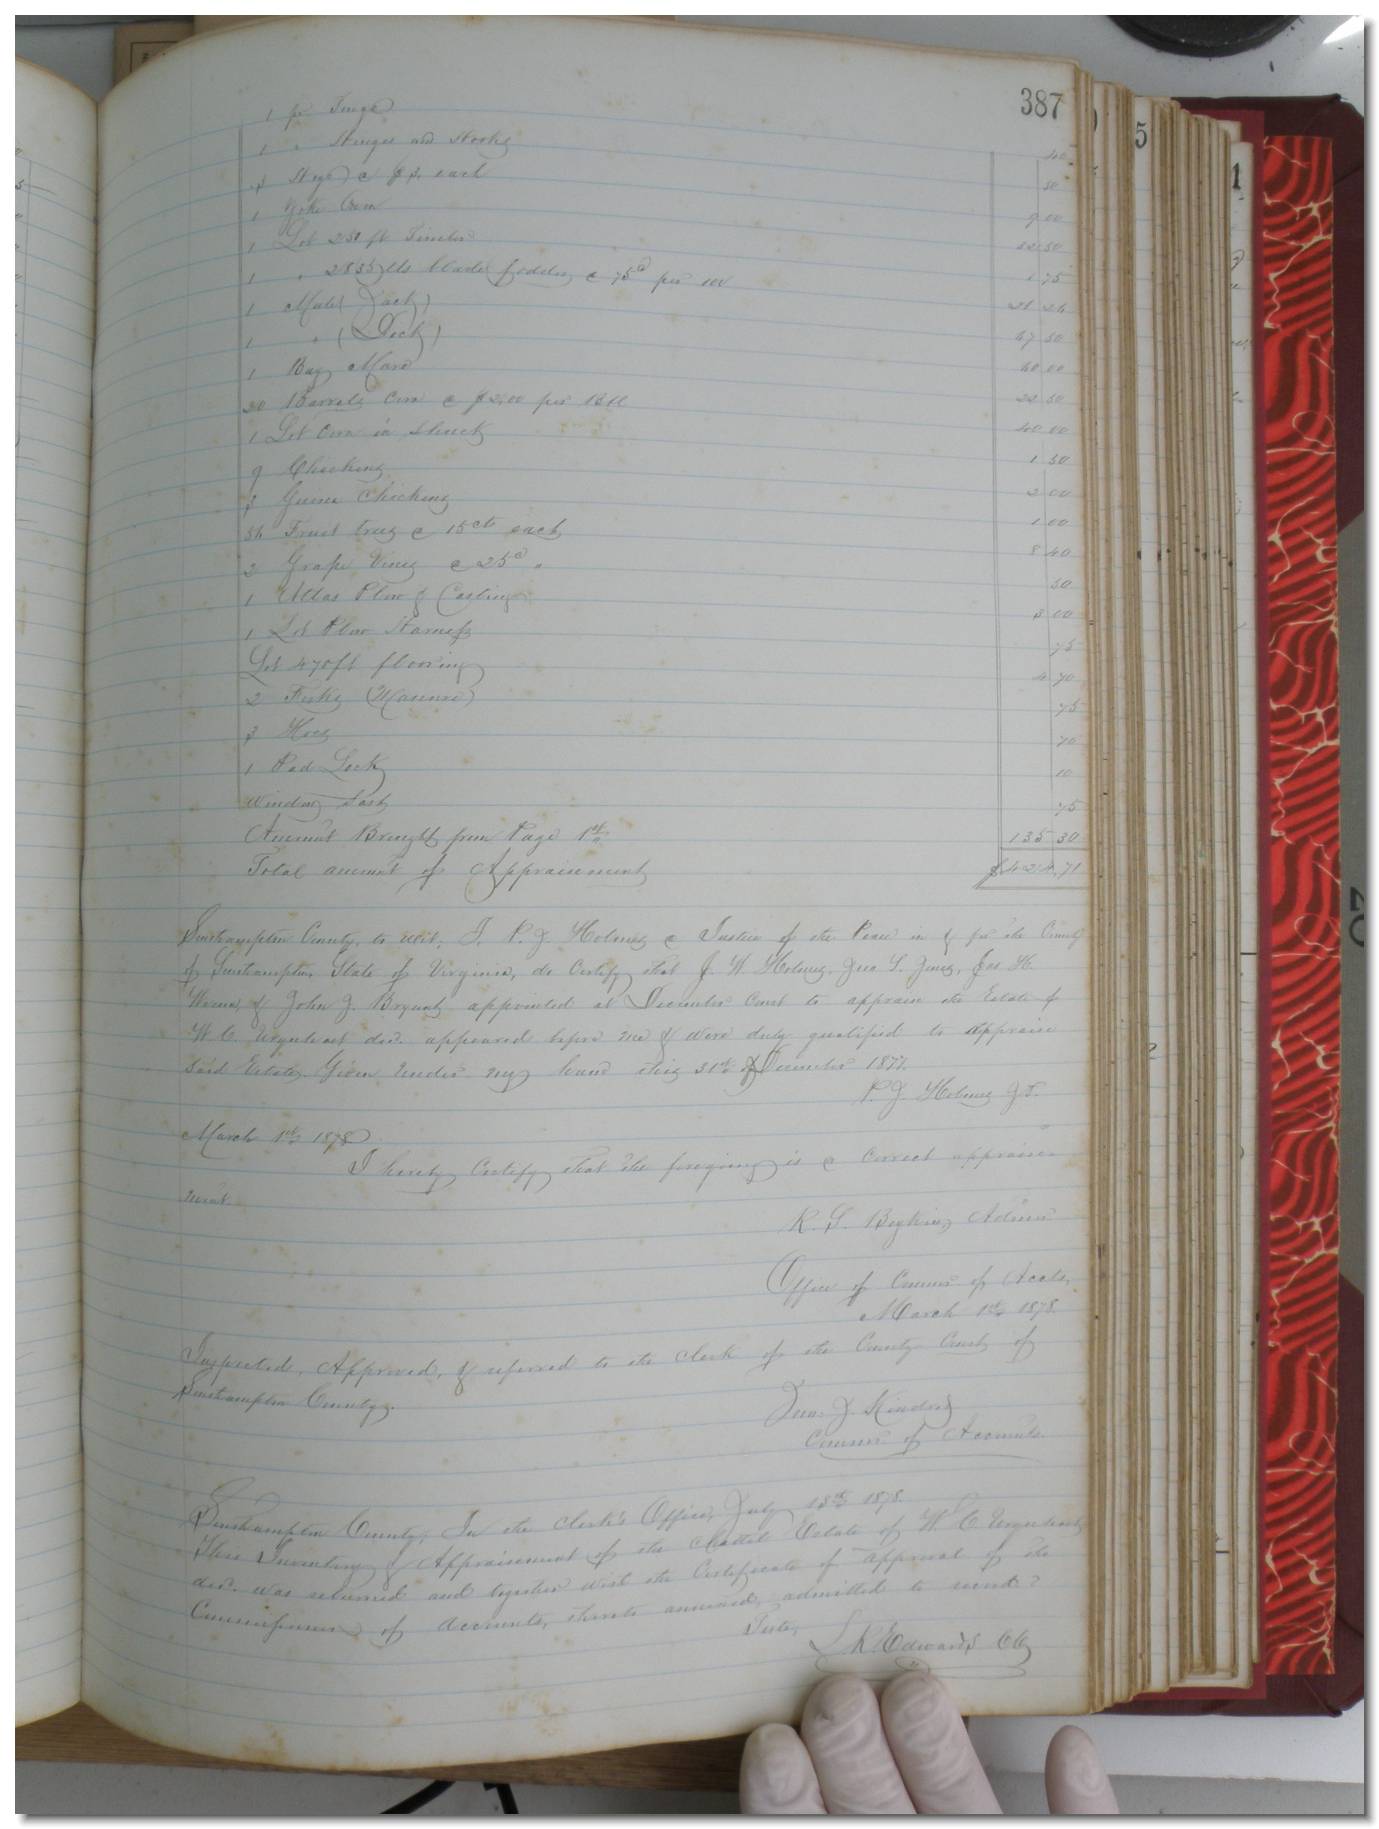 387
1 pr Tongs 40
1 " Hinges and Hooks 50
3 Hogs @ $3. each 9 00
1 Yoke Oxen 32 50
1 Lot 250 ft Timber 1 75
1 " 2835 lbs blade fodder @ 75c per 100 21 26
1 Mule (Jack) 47 50
1 " (Dock) 40 00
1 Bay Mare 22 50
20 Barrels Corn @ $2.00 per Bbl 40 00
1 Lot Corn in Shuck 1 50
9 Chickens 2 00
3 Guinea Chickens 1 00
56 Fruit trees @ 15cts each 8 40
2 Grape Vines @ 25c " 50
1 Atlas Plow & Castings 3 00
1 Lot Plow Harness 75
Lot 470 ft flooring 4 70
2 Forks (Manure) 75
3 Hoes 70
1 Pad Lock 10
Window Sash 75
Amount Brought from Page 1st 135 30
Total amount of Appraisement $424.71
Southampton County, to wit; I, P. J. Holmes a Justice of the Peace in & for the County
of Southampton, State of Virginia, do Certify that J. W. Holmes, Jno S. Jones, Jas H.
& John J. Bryant appointed at December Court to appraise the Estate of
W. C. Urquhart dec. appeared before me & were duly qualified to appraise
Said Estate. Given under my hand this 31st of December 1877.
P. J. Holmes J. P.
March 1st 1878
I hereby Certify that the foregoing is a correct appraise-
ment.
R. S. Boykin, Admr
Office of Commr of Accts,
March 1st 1878.
Inspected, Approved, & referred to the Clerk of the County Court of
Southampton County.
Jno. J. Kindred
Commr of Accounts.
Southampton County, In the Clerk's Office, July 18th 1878.
This Inventory & Appraisement of the Chattel Estate of W. C. Urquhart
dec. was returned and together with the Certificate of approval of the
Commissioner of Accounts, thereto annexed, admitted to record.
Teste,
L. R. Edwards Clk